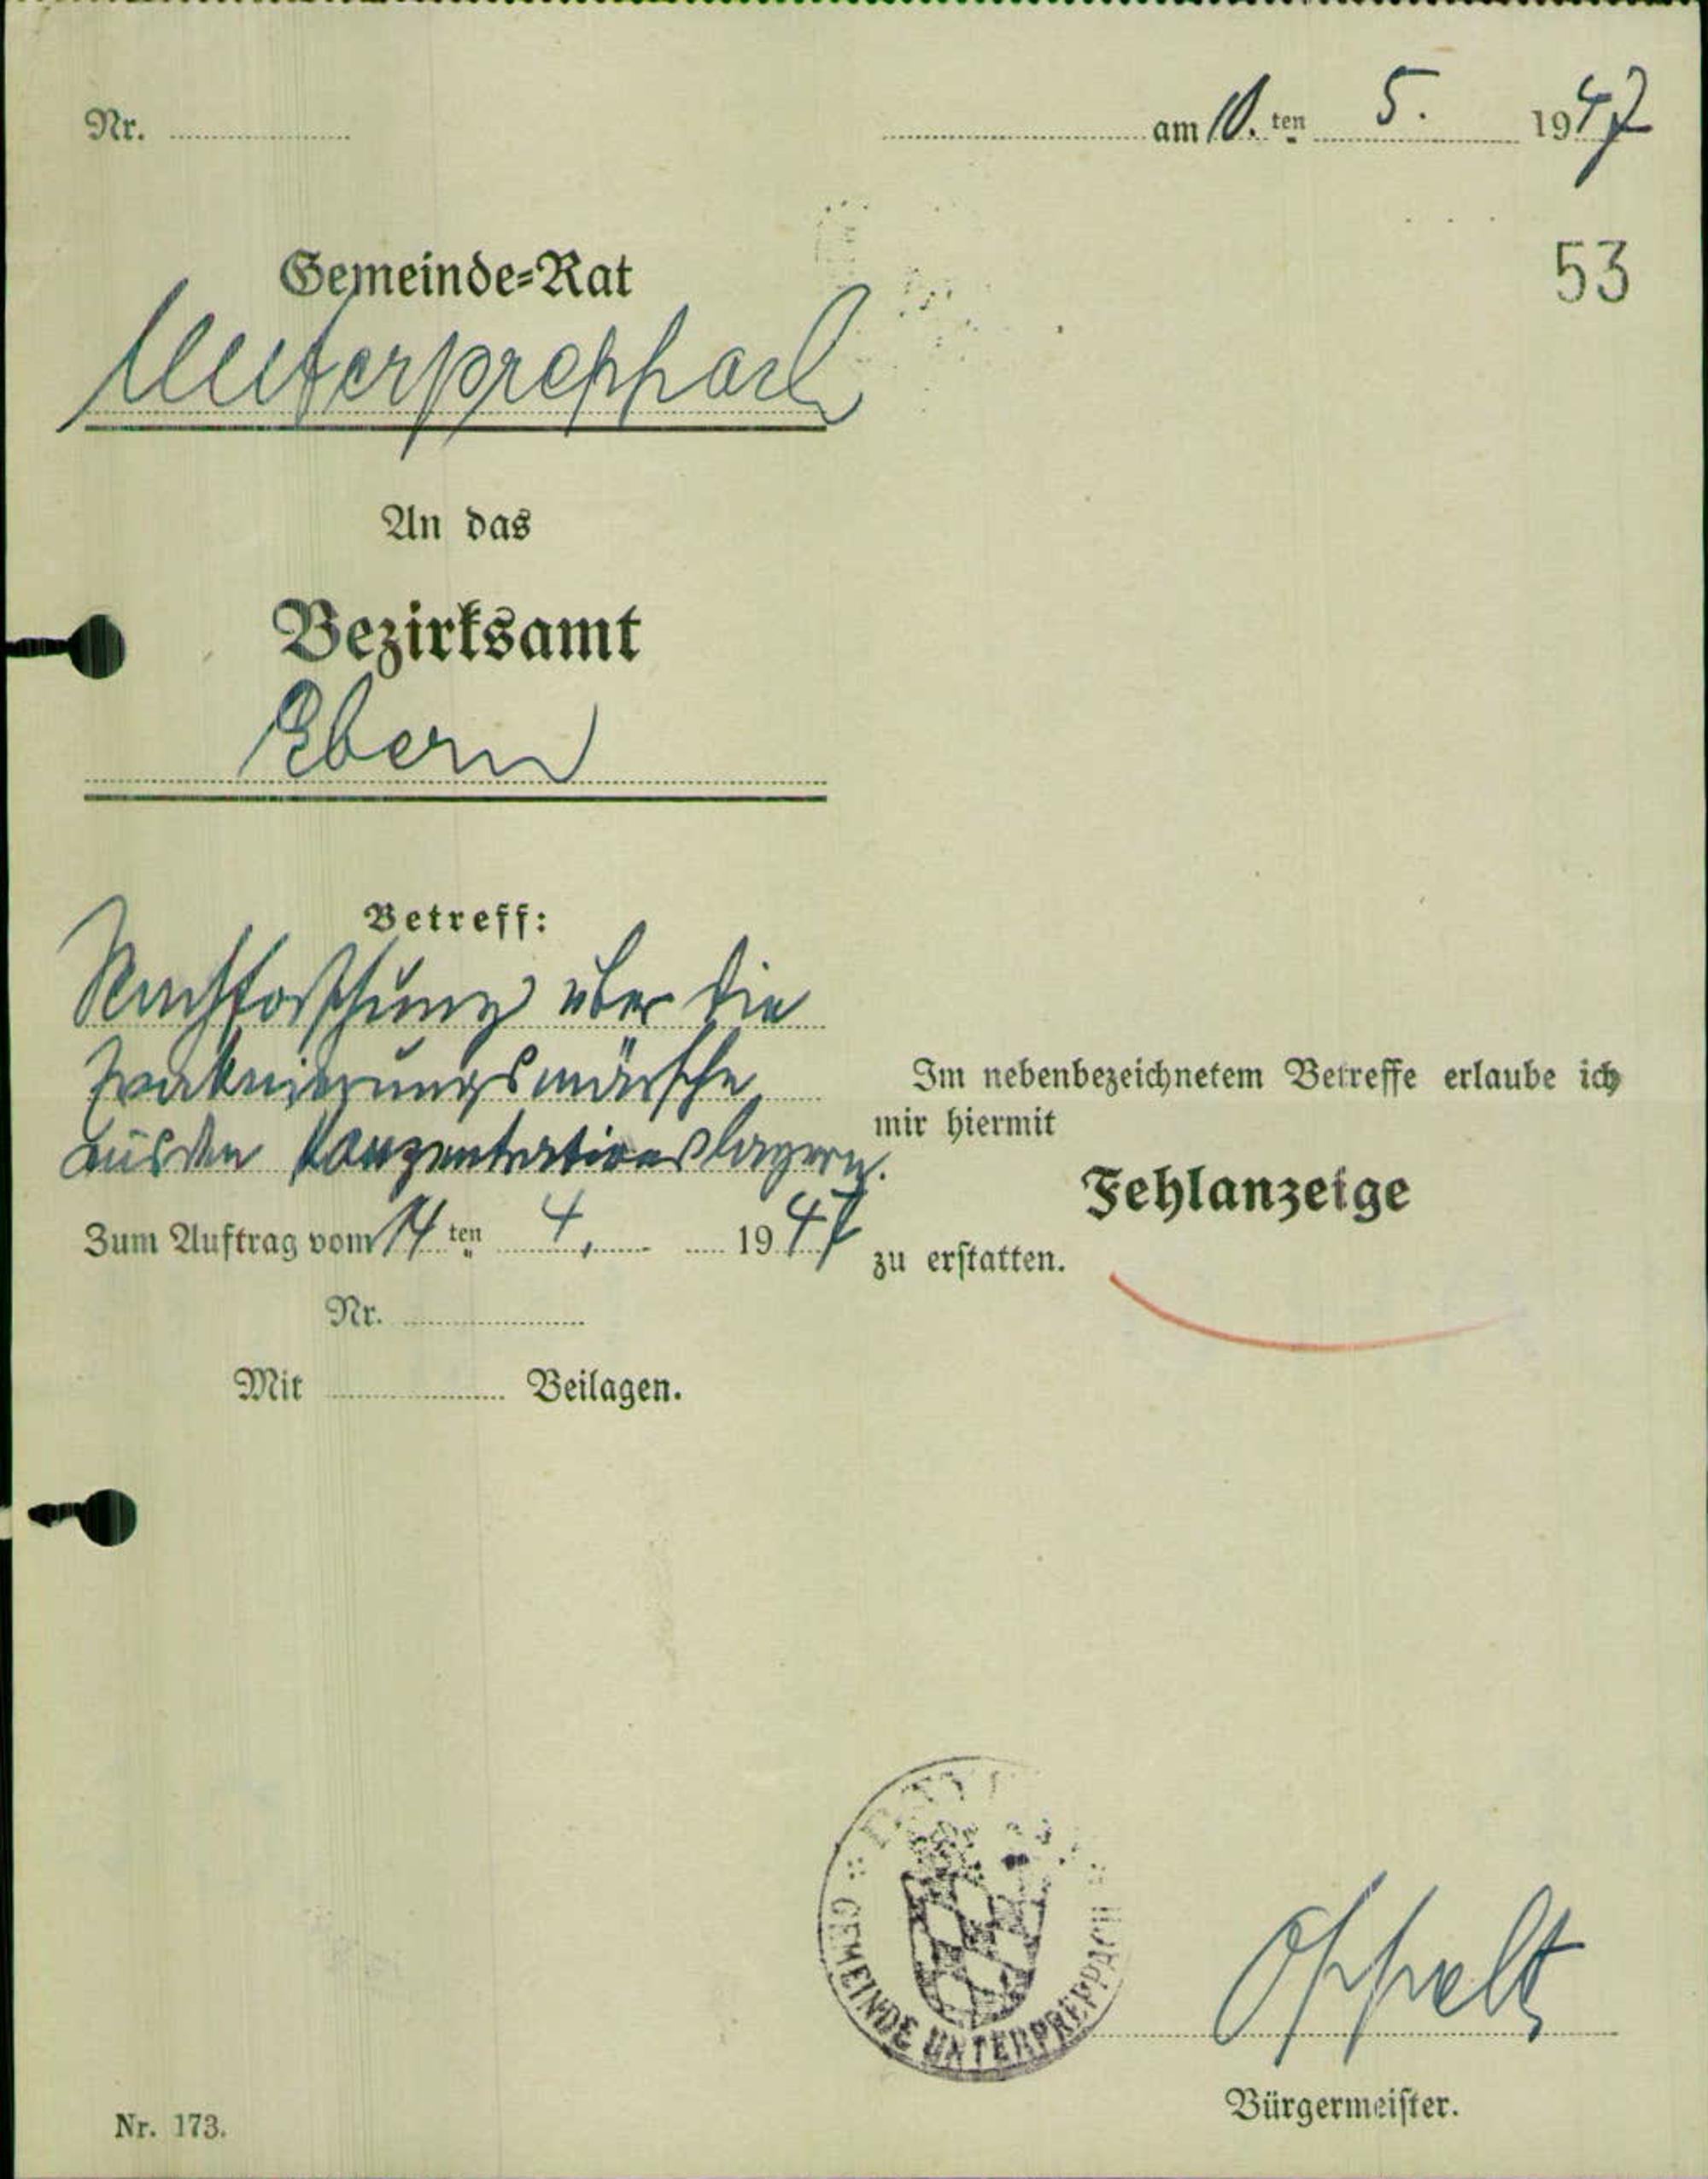 Nr.
am 10. ten 5. 1947
53
Gemeinde=Rat
Unterpreppach
An das
Bezirksamt
Ebern
Betreff:
Nachforschung über die
Evakuierungsmärsche
aus den Konzentrationslagern.
Zum Auftrag vom 14 ten 4. 1947
Nr.
Mit Beilagen.
Im nebenbezeichnetem Betreffe erlaube ich
mir hiermit
Fehlanzeige
zu erstatten.
GEMEINDE UNTERPREPPACH
Oppelt
Bürgermeister.
Nr. 173.